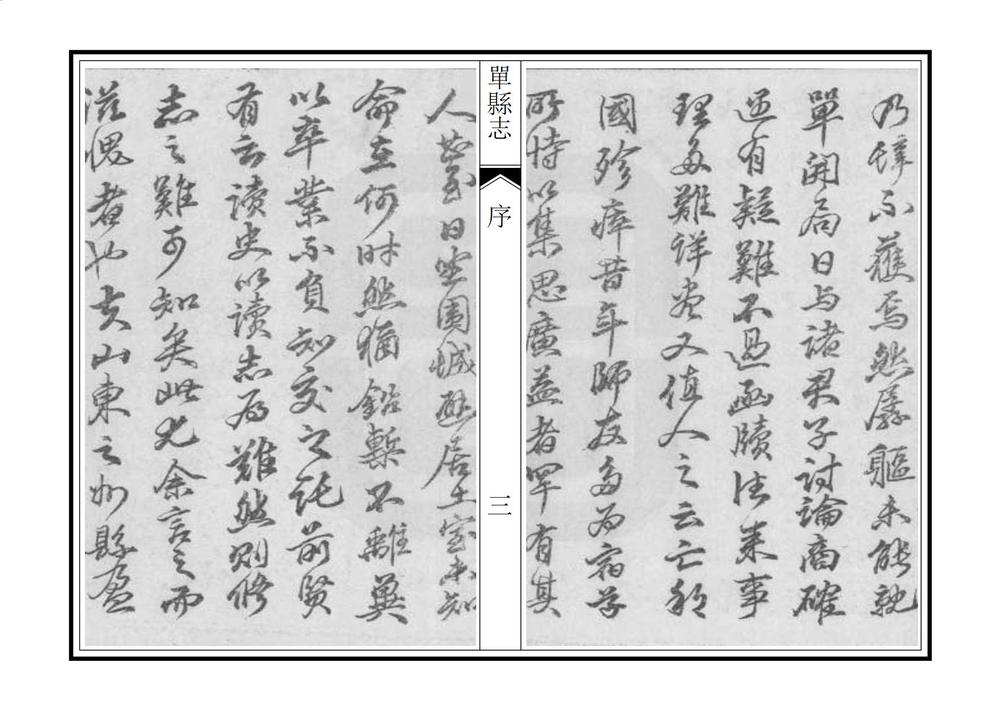 乃辭不獲焉然孱軀未能就
單開局日与諸君子討論商確
逆有疑難不過函牘往来事
理每難詳盡又值人之云亡邦
國殄瘁昔年師友多為宿学
所恃以集思廣益者罕有其
人茲日坐圍城恧居土室未知
命在何時然猶鉛槧不離冀
以卒業不負知交之託前賢
有云读史以讀志為難然則修
志之難可知矣此尤余言之而
滋愧者也夫山東之州縣盈
單縣志
序
三